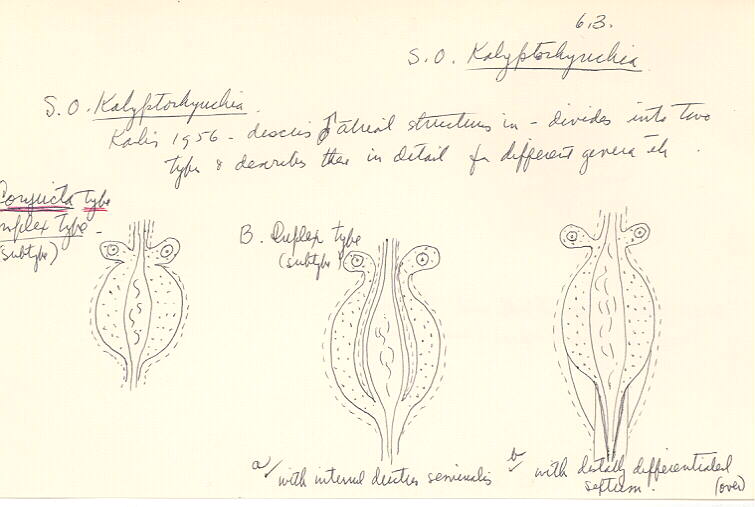 6,3.
S.O. Kalyptorhynchia
S.O. Kalyptorhynchia.
1956 - structures in - divides into two
types & describes these in detail for different genera etc.
Conjuncta type
mplex type -
(subtype)
B. Duplex type
(subtype)
a/ with internal ductus seminalis
b/ with distally differentiated
septum.
(over)